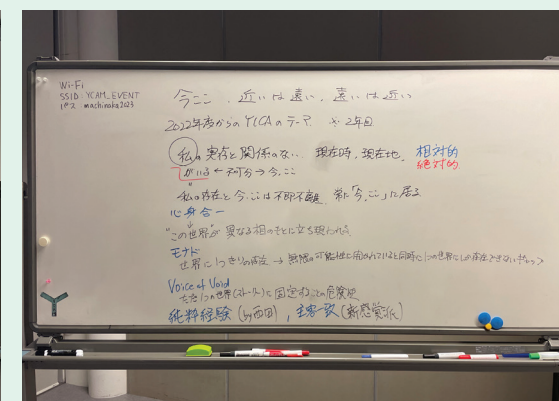 Wi-Fi
SSID: YCAM_EVENT
パス machinaka2023
今ここ、近いは遠い、遠いは近い
2022年度からのYICAのテーマ ※2年目
私の実存と関係のない 現在時、現在地 相対的
がいる ← 不可分 → 今、ここ 絶対的
私の存在と今、ここは不即不離 常に「今、ここ」に居る
心身合一
"この世界"が異なる相のもとに立ち現われる
モナド
世界に1つきりの存在 → 無限の可能性に開かれていると同時に1つの世界にしか存在できない
Voice of Void
ただ1つの世界(ストーリー)に固定することの危険性
純粋経験 (by西田)、主客一致 (新感覚派)